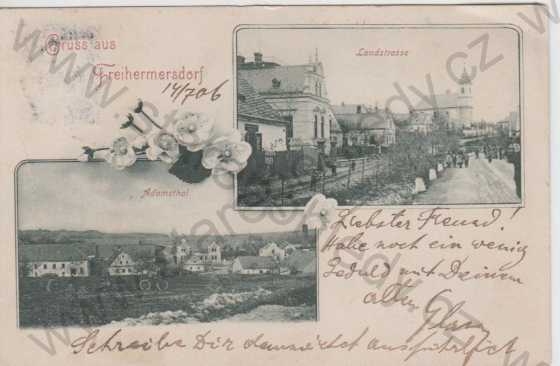 Gruss aus
Freihermersdorf
14/7 06
Landstrasse
Adamsthal
Liebster Freund!
Habe noch ein wenig
Geduld mit Deinem
alten
Schreibe Dir demnächst ausführlich